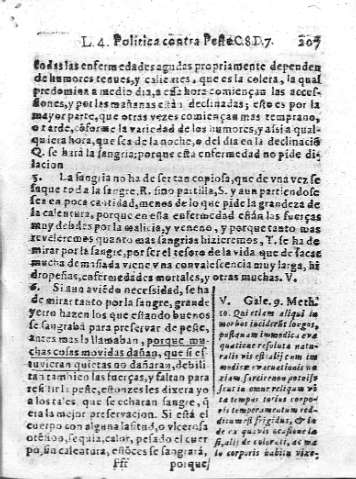 L. 4. Politica contra Peste C.8 D.7. 207
todas las enfermedades agudas propriamente dependen
de humores tenues, y calientes, que es la colera, la qual
predomina a medio dia, a essa hora comiençan las acces-
siones, y por las mañanas estàn declinadas; esto es por la
mayor parte, que otras vezes comiençan mas temprano,
o tarde, cõforme la variedad de los humores, y assi a qual-
quiera hora, que sea de la noche, o del dia en la declinaciõ
Q. se harà la sangria; porque esta enfermedad no pide di-
lacion
5. La sangria no ha de ser tan copiosa, que de vna vez se
saque toda la sangre, R. sino partilla, S. y aun partiendose
sea en poca cantidad, menos de lo que pide la grandeza de
la calentura, porque en esta enfermedad estàn las fuerças
muy debiles por la malicia, y veneno, y por que tanto mas
reveleremos quanto mas sangrias hizieremos, T. se ha de
mirar por la sangre, por ser el tesoro de la vida que de sacar
mucha demasiada viene vna convalescencia muy larga, hi
dropesias, enfermedades mortales, y otras muchas. V.
6. Si aun aviedo necessidad, se ha
de mirar tanto por la sangre, grande
yerro hazen los que estando buenos
se sangraba para preservar de peste,
antes mas la llamaban, porque mu-
chas cosas movidas dañan, que si es-
tuvieran quietas no dañaran, debili-
tan tambien las fuerças, y faltan para
resistir la peste, estonzes les dixera yo
a los tales, que se echaran sangre, q̃
era la mejor preservacion. Si està el
cuerpo con alguna lasitud, o vlcerosa
o tẽsion, sequia, calor, pesado el cuer
po, sin caleatura, estõces se sangrarà,
V. Gale. 9. Meth.
to. Qui etiam aliqui in
morbos inciderũt longos,
postquam immodica eva
quatione resoluta natu-
ralis vis est
modice evacuationis
corporis temperamentum red-
Fff porque